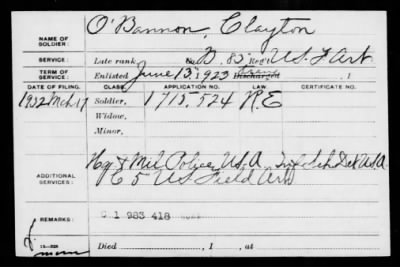 NAME OF SOLDIER: O'Bannon, Clayton
SERVICE: Late rank, Co. D. 83" Reg't U.S. F Art
TERM OF SERVICE: Enlisted June 13, 1923 Discharged , 1
DATE OF FILING. CLASS. APPLICATION NO. LAW. CERTIFICATE NO.
1932 Mch 17 Soldier, 1715.524 R.E
Widow,
Minor,
ADDITIONAL SERVICES: Hq & Mil Police, U.S.A Inf Sch Det U.S.A
5 U.S. Field Art
REMARKS: C 1 983 418
Died , 1 , at